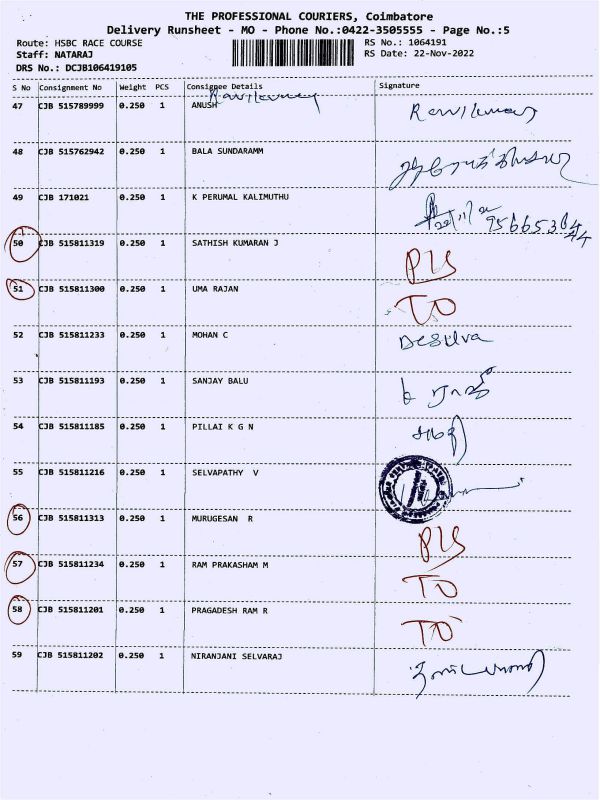 THE PROFESSIONAL COURIERS, Coimbatore
Delivery Runsheet - MO - Phone No.:0422-3505555 - Page No.:5
Route: HSBC RACE COURSE RS No.: 1064191
Staff: NATARAJ RS Date: 22-Nov-2022
DRS No.: DCJB106419105
S No Consignment No Weight PCS Consignee Details Signature
47 CJB 515789999 0.250 1 ANUSH
48 CJB 515762942 0.250 1 BALA SUNDARAMM
49 CJB 171021 0.250 1 K PERUMAL KALIMUTHU
50 CJB 515811319 0.250 1 SATHISH KUMARAN J
51 CJB 515811300 0.250 1 UMA RAJAN TO
52 CJB 515811233 0.250 1 MOHAN C Desilva
53 CJB 515811193 0.250 1 SANJAY BALU
54 CJB 515811185 0.250 1 PILLAI K G N
55 CJB 515811216 0.250 1 SELVAPATHY V
56 CJB 515811313 0.250 1 MURUGESAN R
57 CJB 515811234 0.250 1 RAM PRAKASHAM M TO
58 CJB 515811201 0.250 1 PRAGADESH RAM R TO
59 CJB 515811202 0.250 1 NIRANJANI SELVARAJ